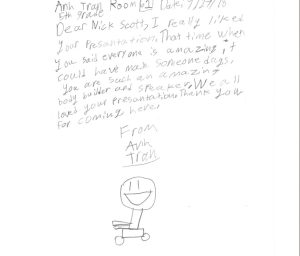 Anh Tran Room 41 Date,
5th grade
Dear Nick Scott, I really liked
your Presentation. That time when
you said everyone is amazing, it
could have made someone days,
you are such an amazing
body builder and speaker. We all
loved your presentation. Thank you
for coming here.
From
Anh
Tran